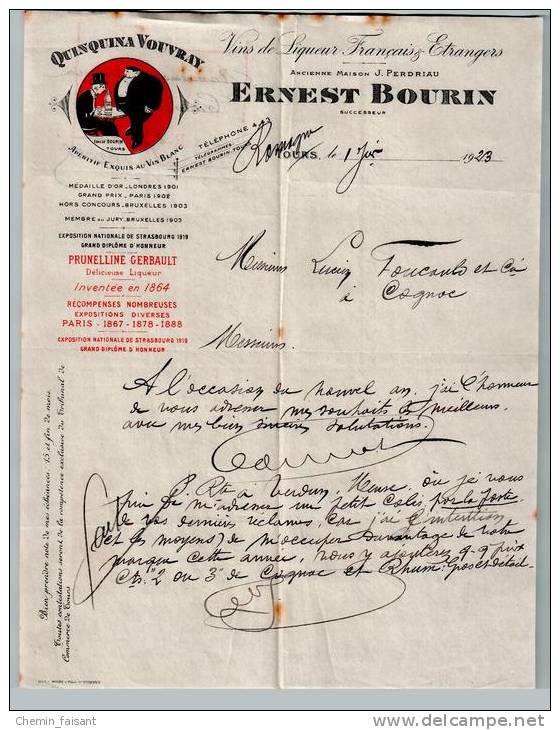 QUINQUINA VOUVRAY
ERNEST BOURIN
TOURS
APÉRITIF EXQUIS AU VIN BLANC
Vins de Liqueur Français & Etrangers
ANCIENNE MAISON J. PERDRIAU
ERNEST BOURIN
SUCCESSEUR
TÉLÉPHONE
TÉLÉGRAMMES
ERNEST BOURIN-TOURS
TOURS, le 1 1923
MÉDAILLE D'OR_LONDRES 1901
GRAND PRIX_PARIS 1902
HORS CONCOURS_BRUXELLES 1903
MEMBRE DU JURY_BRUXELLES 1903
EXPOSITION NATIONALE DE STRASBOURG 1919
GRAND DIPLÔME D'HONNEUR
PRUNELLINE GERBAULT
Délicieuse Liqueur
Inventée en 1864
RÉCOMPENSES NOMBREUSES
EXPOSITIONS DIVERSES
PARIS - 1867-1878-1888
EXPOSITION NATIONALE DE STRASBOURG 1919
GRAND DIPLÔME D'HONNEUR
Messieurs Lucien Foucauld et Cie
à Cognac
Messieurs.
A l'occasion du nouvel an, j'ai l'honneur
de vous adresser mes souhaits les meilleurs
avec mes bien sincères salutations.
à Verdun, Meuse, où je vous
prie de m'adresser un petit colis, par la poste
de vos derniers réclames, car j'ai l'intention
(et les moyens) de m'occuper davantage de votre
marque cette année. Vous y ajouterez q-q prix
2 ou 3 de Cognac et Rhum: gros et détail.
Bien prendre note de mes échéances: 15 et fin de mois.
Toutes contestations seront de la compétence exclusive du Tribunal de
Commerce de Tours
Chemin_faisant